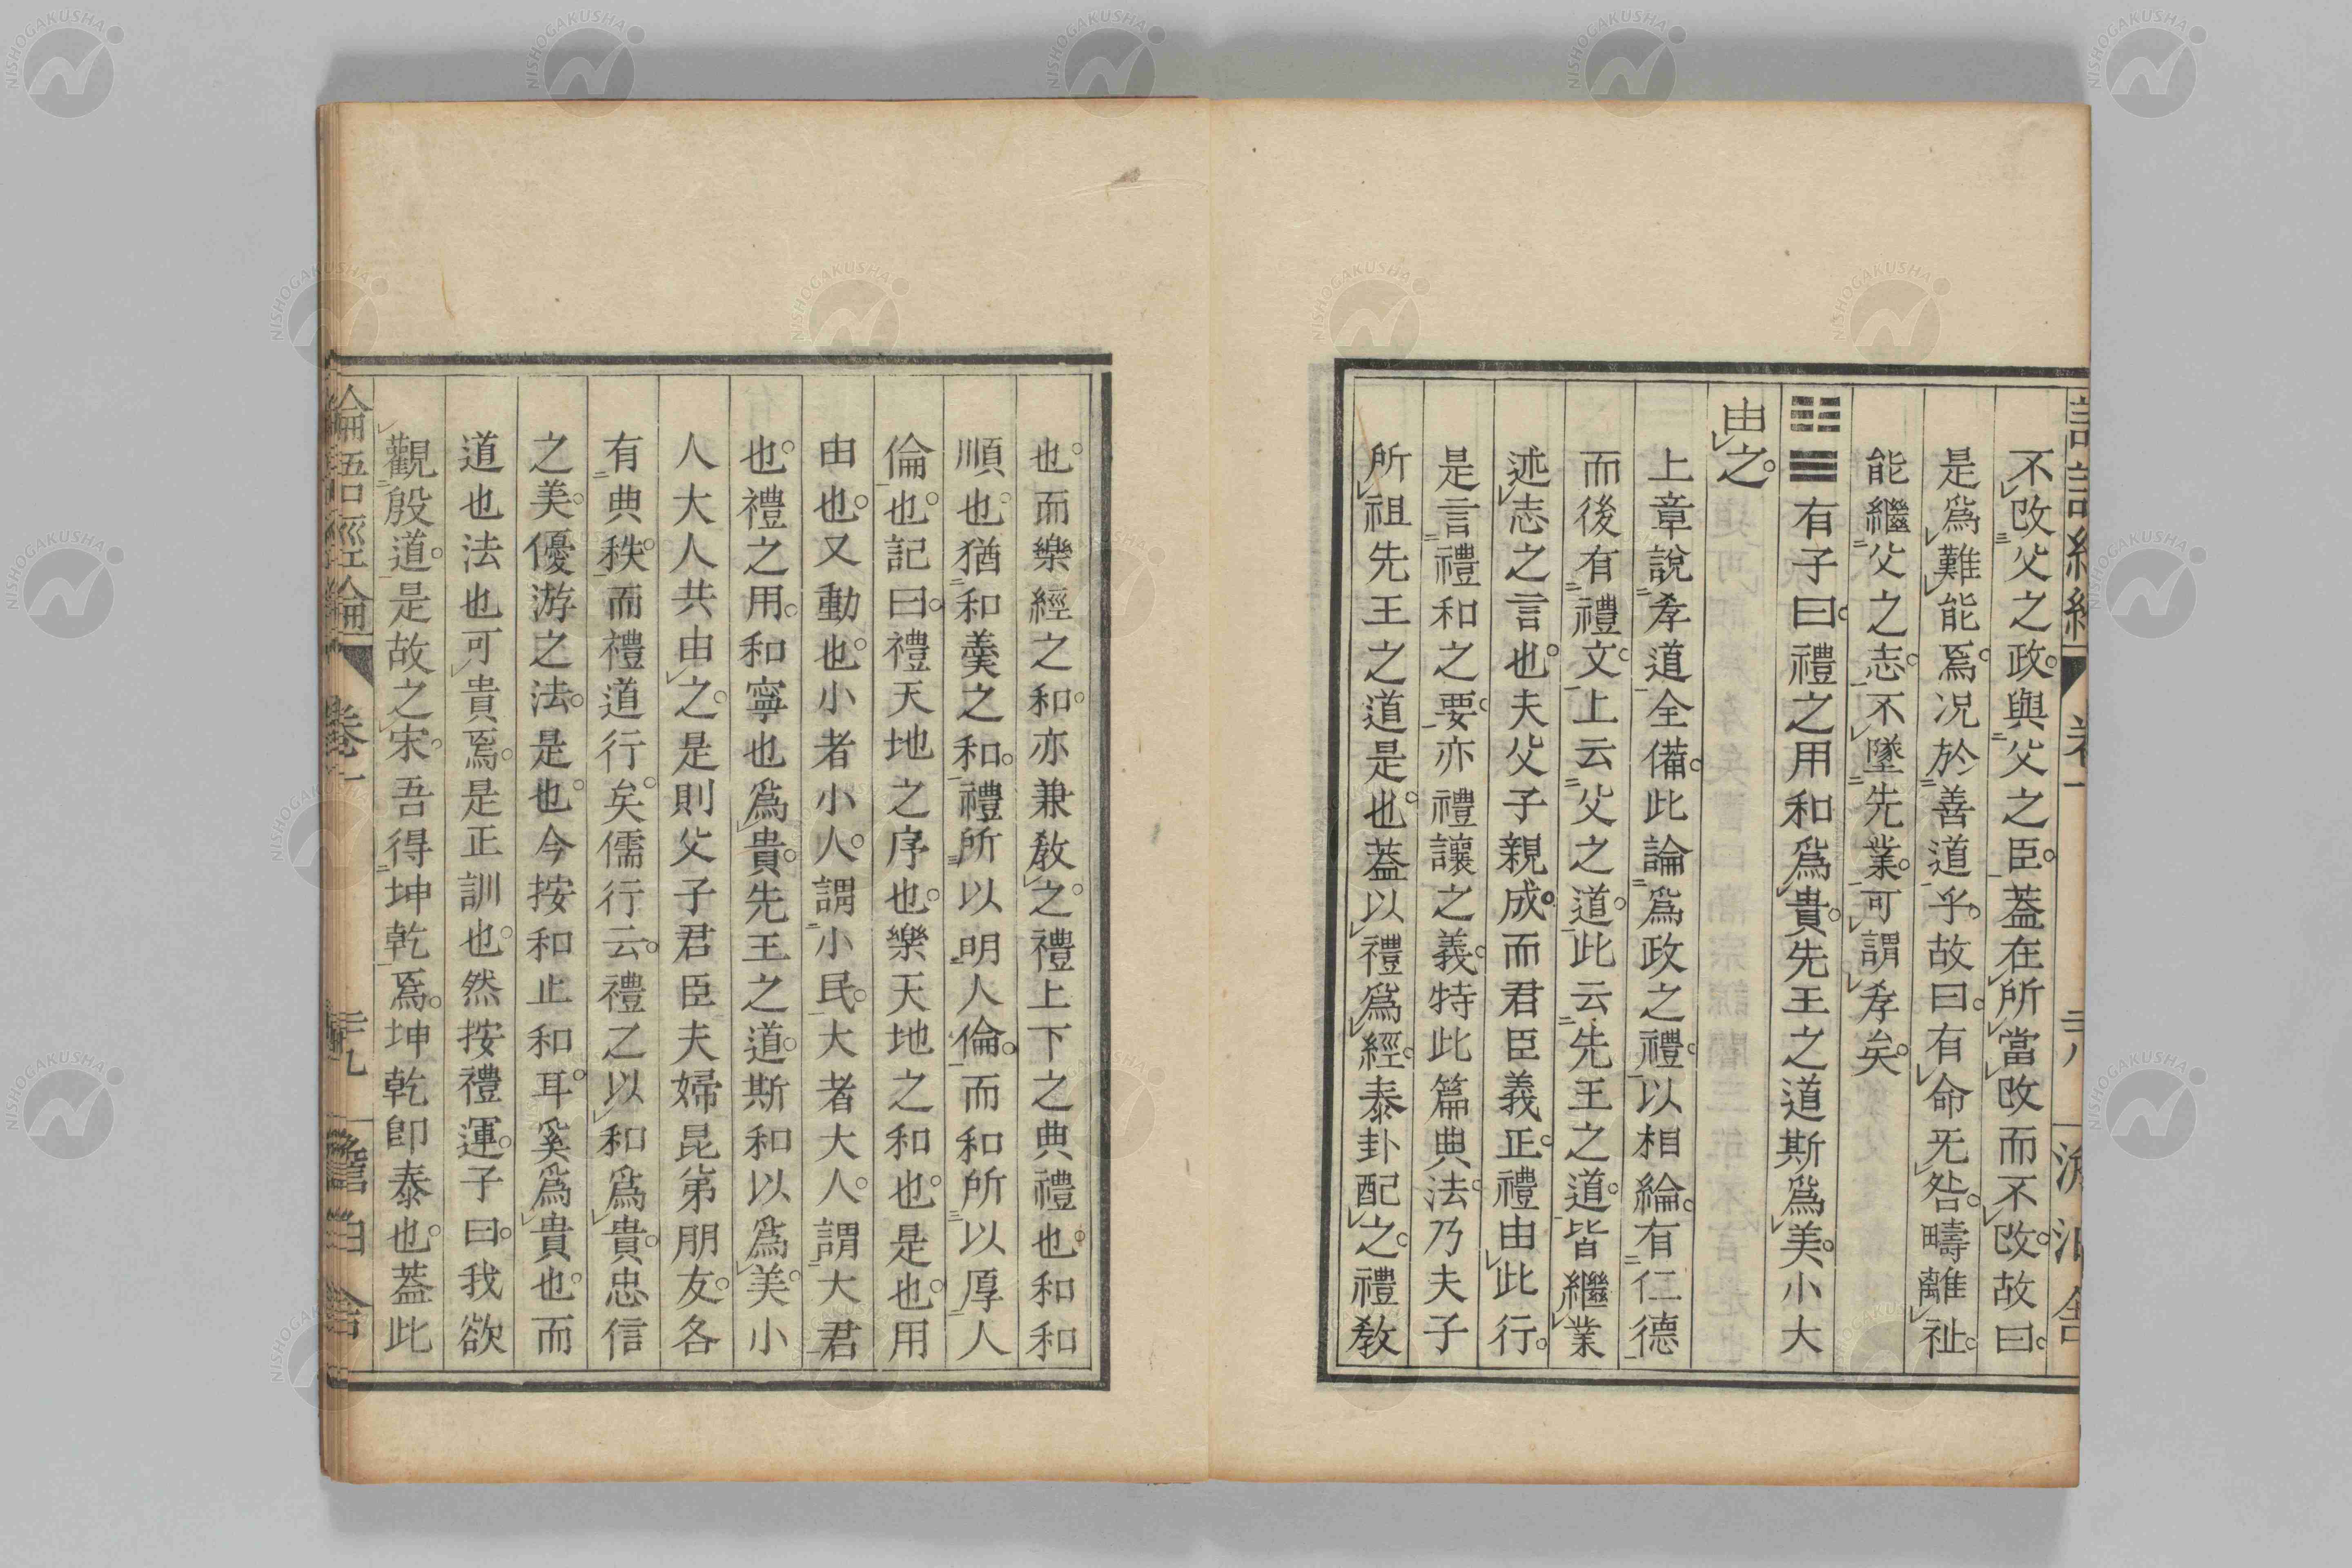 不改父之政。與父之臣。蓋在所當改而不改。故曰。
是爲難能焉。况於善道乎。故曰。有命无咎。疇離祉。
能繼父之志。不墜先業。可謂孝矣。
䷊有子曰。禮之用和爲貴。先王之道斯爲美。小大
由之。
上章說孝道全備。此論爲政之禮。以相綸。有仁德
而後有禮文。上云父之道。此云先王之道。皆繼業
述志之言也。夫父子親成。而君臣義正。禮由此行。
是言禮和之要。亦禮讓之義。特此篇典法。乃夫子
所祖先王之道是也。蓋以禮爲經。泰卦配之。禮敎
也。而樂經之和。亦兼敎之。禮上下之典禮也。和和
順也。猶和羹之和。禮所以明人倫。而和所以厚人
倫也。記曰。禮天地之序也。樂天地之和也。是也。用
由也。又動也。小者小人。謂小民。大者大人。謂大君
也。禮之用。和寧也。爲貴。先王之道。斯和以爲美。小
人大人共由之。是則父子君臣夫婦昆弟朋友。各
有典秩。而禮道行矣。儒行云。禮之以和爲貴。忠信
之美。優游之法。是也。今按和止和耳。奚爲貴也。而
道也法也可貴焉。是正訓也。然按禮運。子曰。我欲
觀殷道。是故之宋。吾得坤乾焉。坤乾卽泰也。蓋此
論語經綸 卷一 二十九 舊曰舍